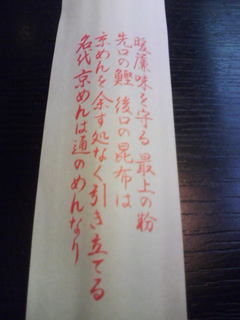 暖簾味を守る 最上の粉
先口の鰹 後口の昆布は
京めんを余す処なく引き立てる
名代 京めんは通のめんなり